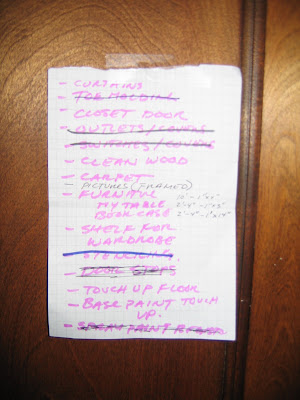 - CURTAINS
- TOE MOLDING
- CLOSET DOOR
- OUTLETS/COVERS
- SWITCHES/COVERS
- CLEAN WOOD
- CARPET
- PICTURES (FRAMED)
- FURNITURE
MY TABLE
BOOK CASE
- SHELF FOR
WARDROBE
- STENCILING
- DOOR STOPS
- TOUCH UP FLOOR
- BASE PAINT TOUCH
UP.
- SPRAY PAINT